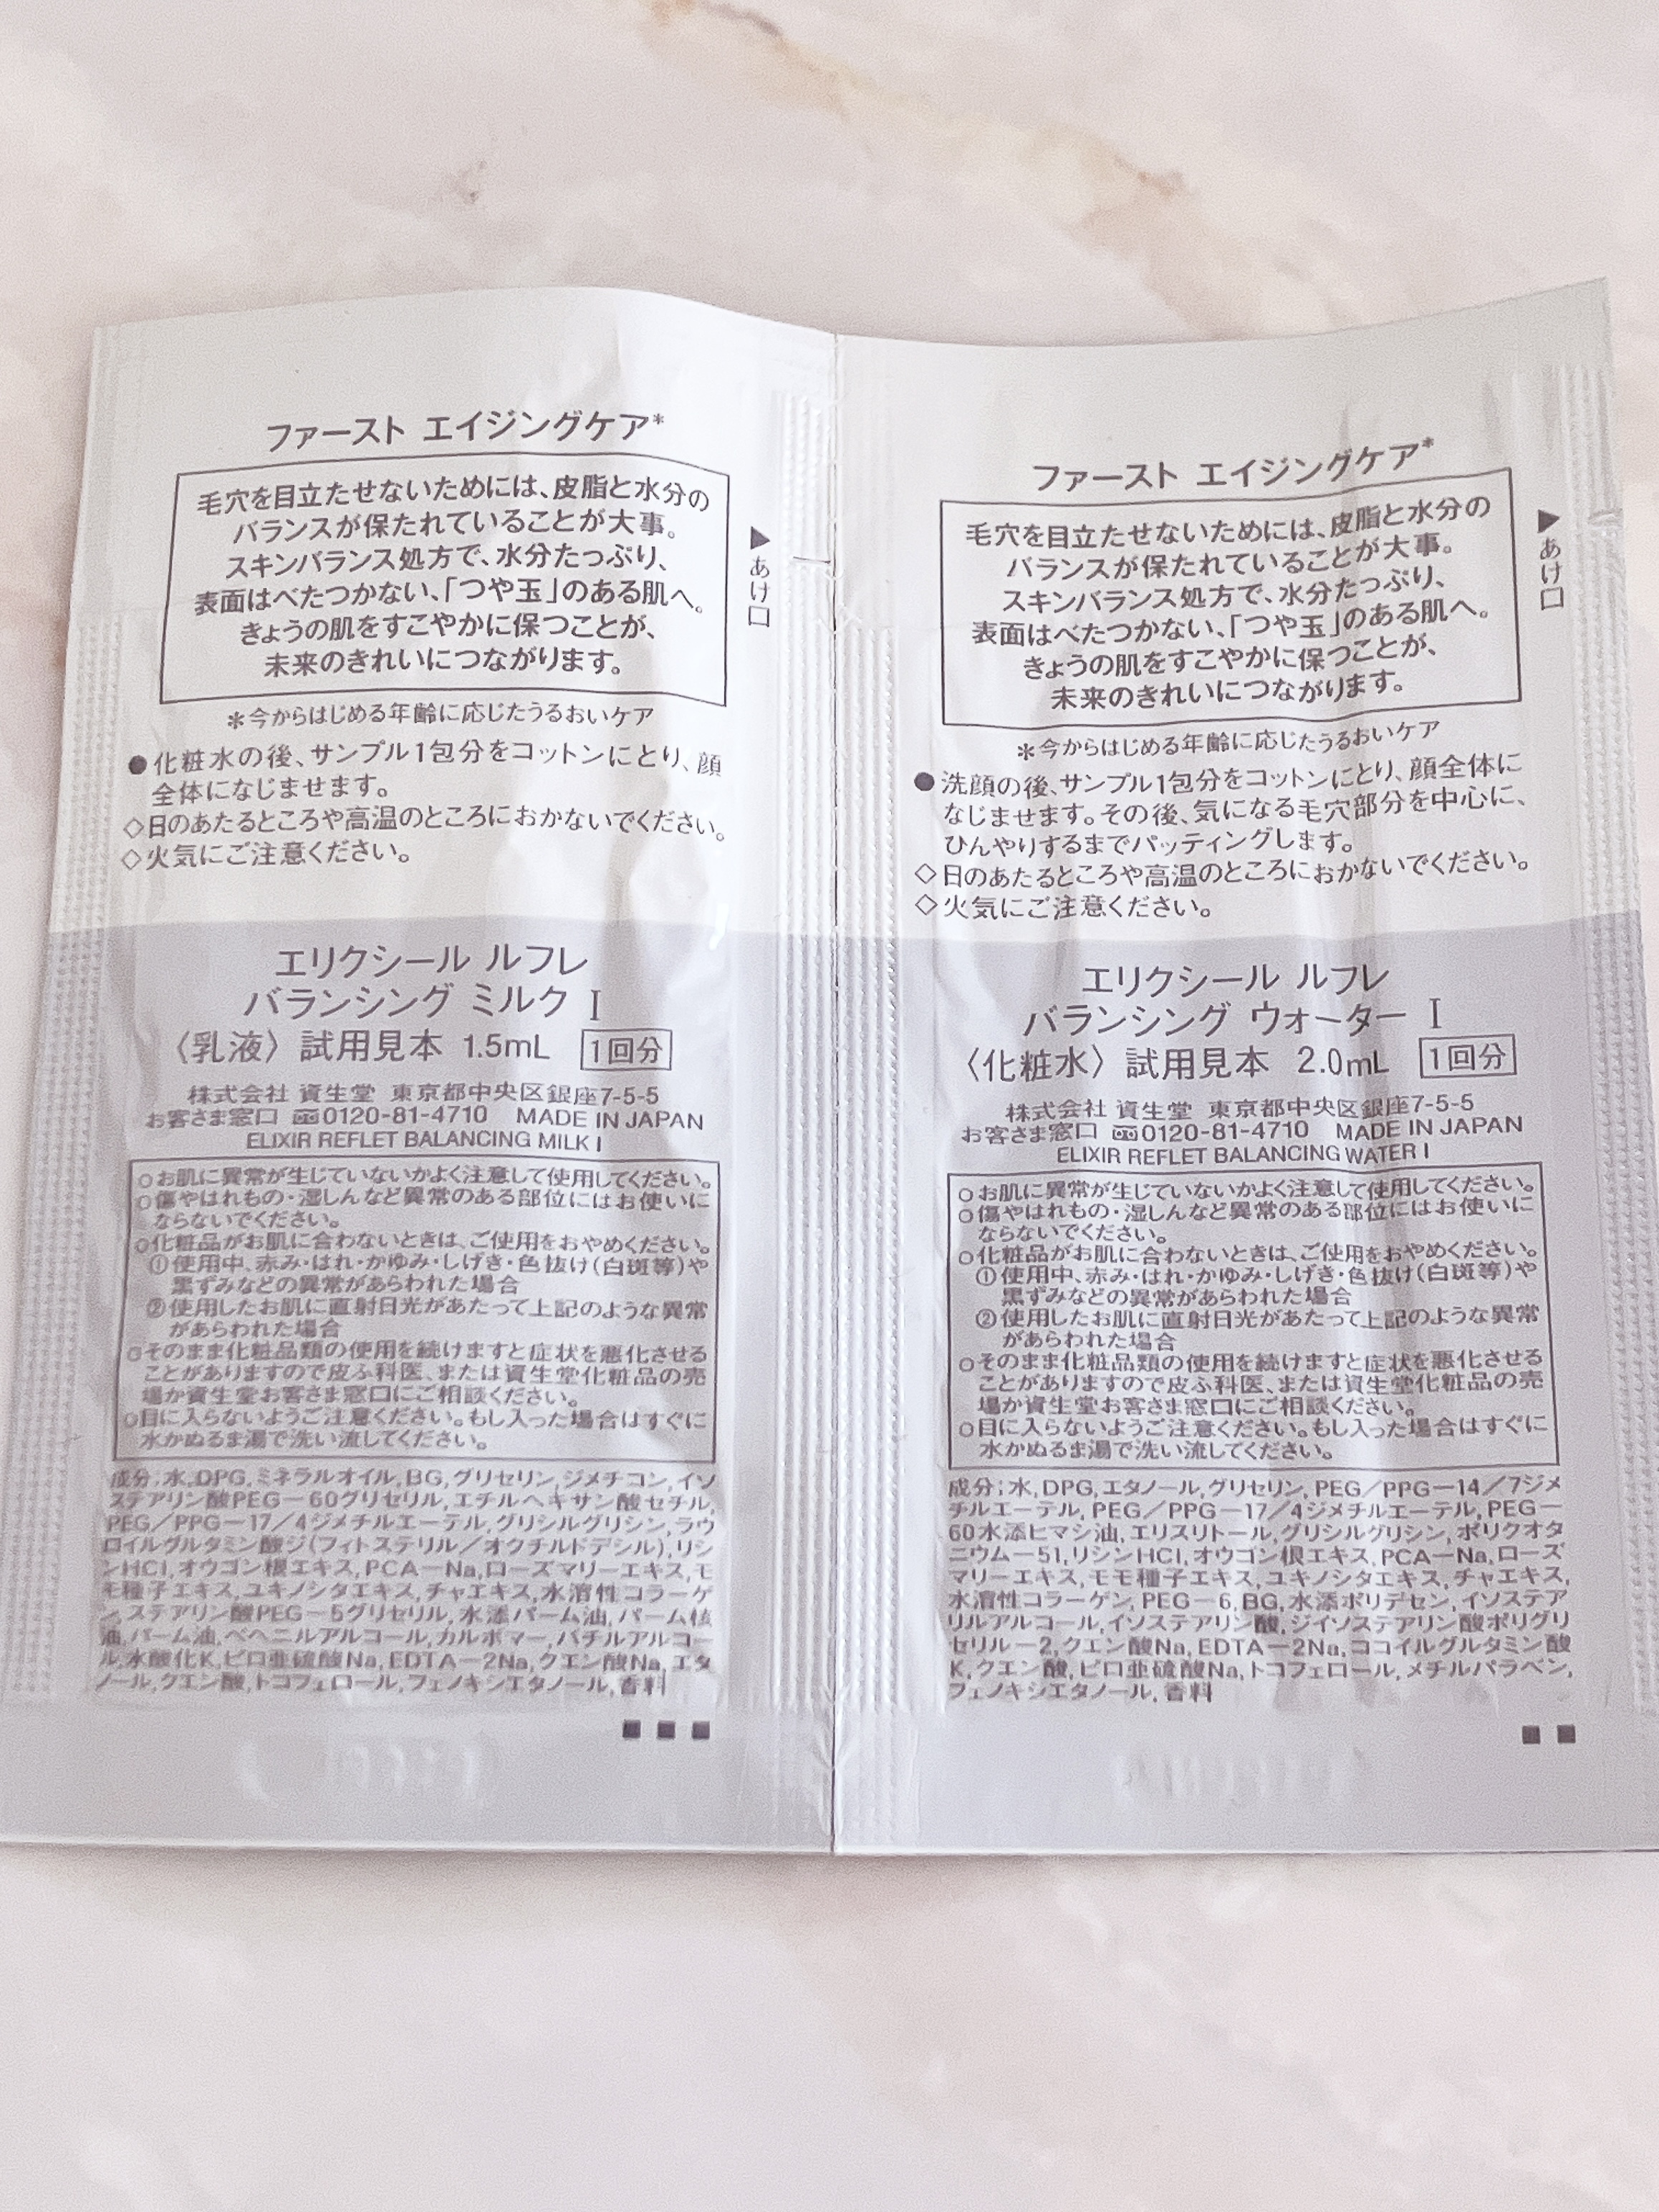 ファースト エイジングケア*
毛穴を目立たせないためには、皮脂と水分の
バランスが保たれていることが大事。
スキンバランス処方で、水分たっぷり、
表面はべたつかない、「つや玉」のある肌へ。
きょうの肌をすこやかに保つことが、
未来のきれいにつながります。
▶あけ口
*今からはじめる年齢に応じたうるおいケア
●化粧水の後、サンプル1包分をコットンにとり、顔
全体になじませます。
◇日のあたるところや高温のところにおかないでください。
◇火気にご注意ください。
エリクシール ルフレ
バランシング ミルク Ⅰ
〈乳液〉試用見本 1.5mL 1回分
株式会社 資生堂 東京都中央区銀座7-5-5
お客さま窓口 0120-81-4710 MADE IN JAPAN
ELIXIR REFLET BALANCING MILK I
○お肌に異常が生じていないかよく注意して使用してください。
○傷やはれもの・湿しんなど異常のある部位にはお使いに
ならないでください。
○化粧品がお肌に合わないときは、ご使用をおやめください。
①使用中、赤み・はれ・かゆみ・しげき・色抜け(白斑等)や
黒ずみなどの異常があらわれた場合
②使用したお肌に直射日光があたって上記のような異常
があらわれた場合
○そのまま化粧品類の使用を続けますと症状を悪化させる
ことがありますので皮ふ科医、または資生堂化粧品の売
場か資生堂お客さま窓口にご相談ください。
○目に入らないようご注意ください。もし入った場合はすぐに
水かぬるま湯で洗い流してください。
成分:水,DPG,ミネラルオイル,BG,グリセリン,ジメチコン,イソ
ステアリン酸PEG－60グリセリル,エチルヘキサン酸セチル,
PEG／PPG－17／4ジメチルエーテル,グリシルグリシン,ラウ
ロイルグルタミン酸ジ(フィトステリル／オクチルドデシル),リシ
ンHCl,オウゴン根エキス,PCA－Na,ローズマリーエキス,モ
モ種子エキス,ユキノシタエキス,チャエキス,水溶性コラーゲ
ン,ステアリン酸PEG－5グリセリル,水添パーム油,パーム核
油,パーム油,ベヘニルアルコール,カルボマー,バチルアルコー
ル,水酸化K,ピロ亜硫酸Na,EDTA－2Na,クエン酸Na,エタ
ノール,クエン酸,トコフェロール,フェノキシエタノール,香料
ファースト エイジングケア*
毛穴を目立たせないためには、皮脂と水分の
バランスが保たれていることが大事。
スキンバランス処方で、水分たっぷり、
表面はべたつかない、「つや玉」のある肌へ。
きょうの肌をすこやかに保つことが、
未来のきれいにつながります。
▶あけ口
*今からはじめる年齢に応じたうるおいケア
●洗顔の後、サンプル1包分をコットンにとり、顔全体に
なじませます。その後、気になる毛穴部分を中心に、
ひんやりするまでパッティングします。
◇日のあたるところや高温のところにおかないでください。
◇火気にご注意ください。
エリクシール ルフレ
バランシング ウォーター Ⅰ
〈化粧水〉試用見本 2.0mL 1回分
株式会社 資生堂 東京都中央区銀座7-5-5
お客さま窓口 0120-81-4710 MADE IN JAPAN
ELIXIR REFLET BALANCING WATER I
○お肌に異常が生じていないかよく注意して使用してください。
○傷やはれもの・湿しんなど異常のある部位にはお使いに
ならないでください。
○化粧品がお肌に合わないときは、ご使用をおやめください。
①使用中、赤み・はれ・かゆみ・しげき・色抜け(白斑等)や
黒ずみなどの異常があらわれた場合
②使用したお肌に直射日光があたって上記のような異常
があらわれた場合
○そのまま化粧品類の使用を続けますと症状を悪化させる
ことがありますので皮ふ科医、または資生堂化粧品の売
場か資生堂お客さま窓口にご相談ください。
○目に入らないようご注意ください。もし入った場合はすぐに
水かぬるま湯で洗い流してください。
成分:水,DPG,エタノール,グリセリン,PEG／PPG－14／7ジメ
チルエーテル,PEG／PPG－17／4ジメチルエーテル,PEG－
60水添ヒマシ油,エリスリトール,グリシルグリシン,ポリクオタ
ニウム－51,リシンHCl,オウゴン根エキス,PCA－Na,ローズ
マリーエキス,モモ種子エキス,ユキノシタエキス,チャエキス,
水溶性コラーゲン,PEG－6,BG,水添ポリデセン,イソステア
リルアルコール,イソステアリン酸,ジイソステアリン酸ポリグリ
セリル－2,クエン酸Na,EDTA－2Na,ココイルグルタミン酸
K,クエン酸,ピロ亜硫酸Na,トコフェロール,メチルパラベン,
フェノキシエタノール,香料